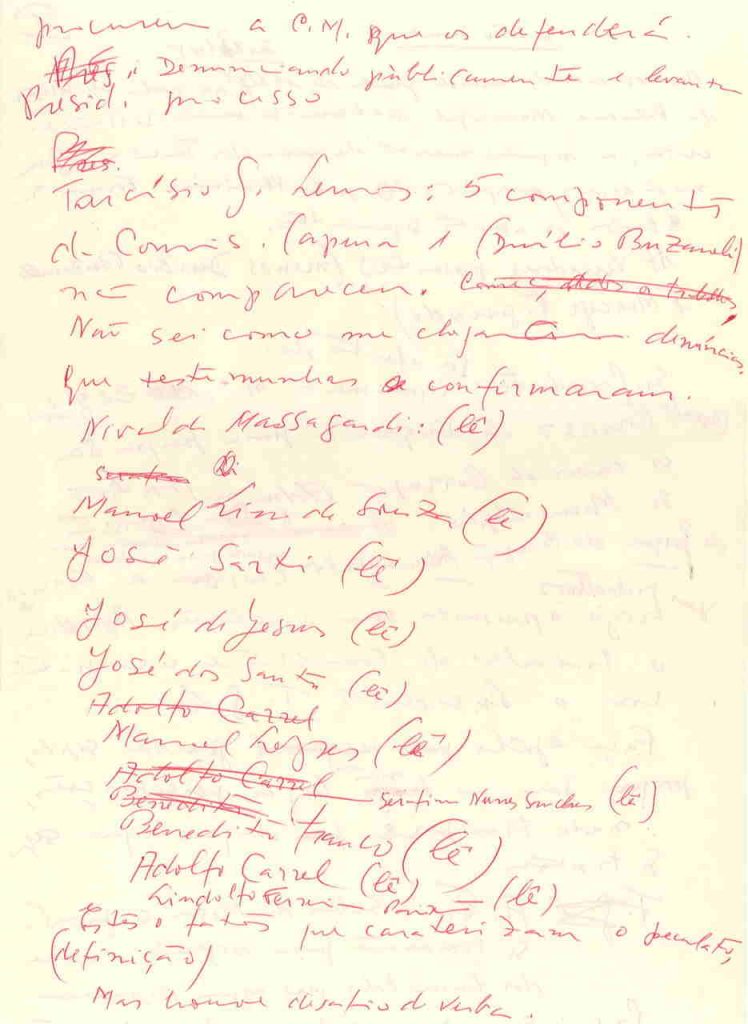 procurem a C.M. que os defenderá.
Denunciando públicamente e levantar
Presid. processo
Tarcísio G. Lemos: 5 componentes
da Comis. (apena 1 (Duílio Buzaneli)
nã compareceu.
Não sei como me chegam denúncias,
que testemunhas confirmaram.
Nivaldo Massagardi: (lê)
Manoel Lino de Souza (lê)
José Sarti (lê)
José de Jesus (lê)
José dos Santos (lê)
Adolfo Carrel
Manuel (lê)
Adolfo Carrel Serafim Nunes (lê)
Benedito
Benedito Franco (lê)
Adolfo Carrel (lê)
Lindolfo (lê)
Estes o fatos que caraterizam o peculato,
(definição)
Mas houve desatio d verba.